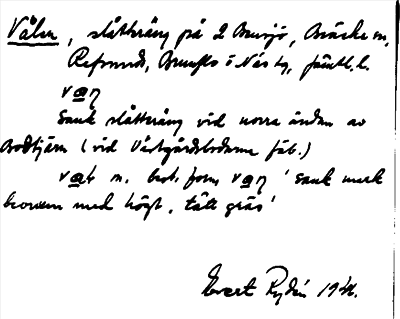 Vålen, slåtteräng på 2 Bensjö, Bräcke sn,
Refsunds, Brunflo o Näs tg, Jämtl. l.
Sank slåtteräng vid norra ändan av
Bodtjärn (vid Västgårdsbodarna fäb.)
n. best. form 'sank mark
beväxen med högt, tätt gräs'
Evert Rydén 1941.